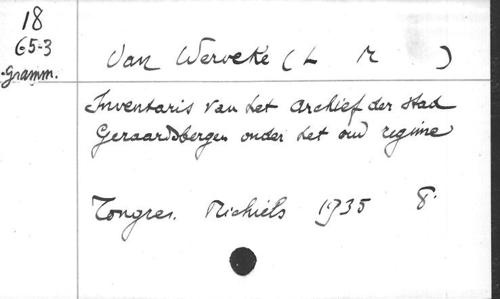 18
65-3
Gramm.
Van Werveke (L M )
Inventaris van het archief der stad
Geraardsbergen onder het oud regime
Tongres. Michiels 1935 8°